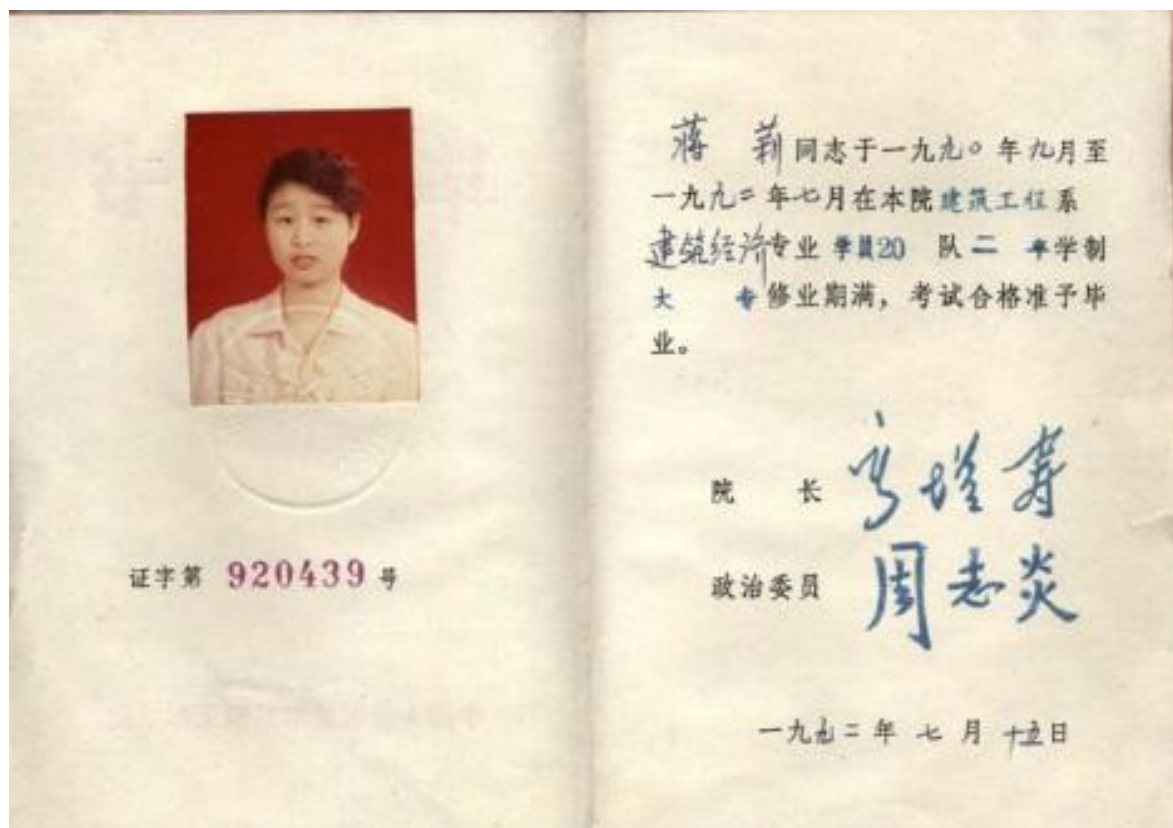 证字第 920439 号
蒋 莉同志于一九九〇年九月至
一九九二年七月在本院建筑工程系
建筑经济专业 学员20 队 二 年学制
大 专修业期满，考试合格准予毕
业。
院 长 高增寿
政治委员 周志炎
一九九二年 七 月 十五日